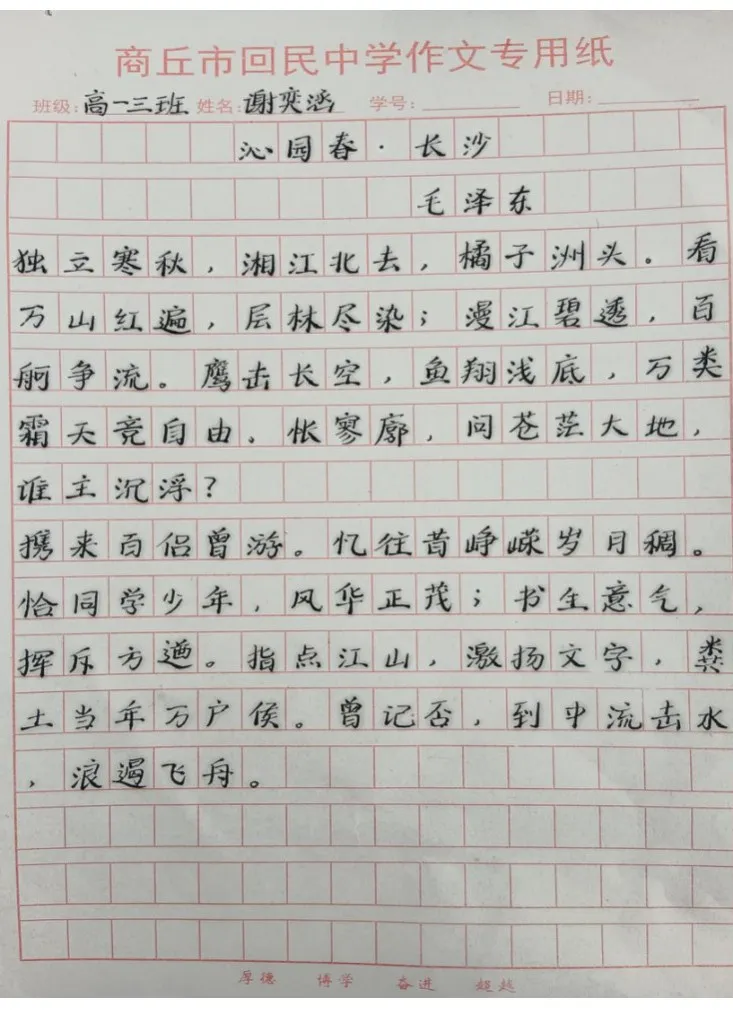 商丘市回民中学作文专用纸
班级:高一三班 姓名:谢奕涵 学号: 日期:
沁园春·长沙
毛泽东
独立寒秋，湘江北去，橘子洲头。看
万山红遍，层林尽染；漫江碧透，百
舸争流。鹰击长空，鱼翔浅底，万类
霜天竞自由。怅寥廓，问苍茫大地，
谁主沉浮？
携来百侣曾游。忆往昔峥嵘岁月稠。
恰同学少年，风华正茂；书生意气，
挥斥方遒。指点江山，激扬文字，粪
土当年万户侯。曾记否，到中流击水
，浪遏飞舟。
厚德 博学 奋进 超越